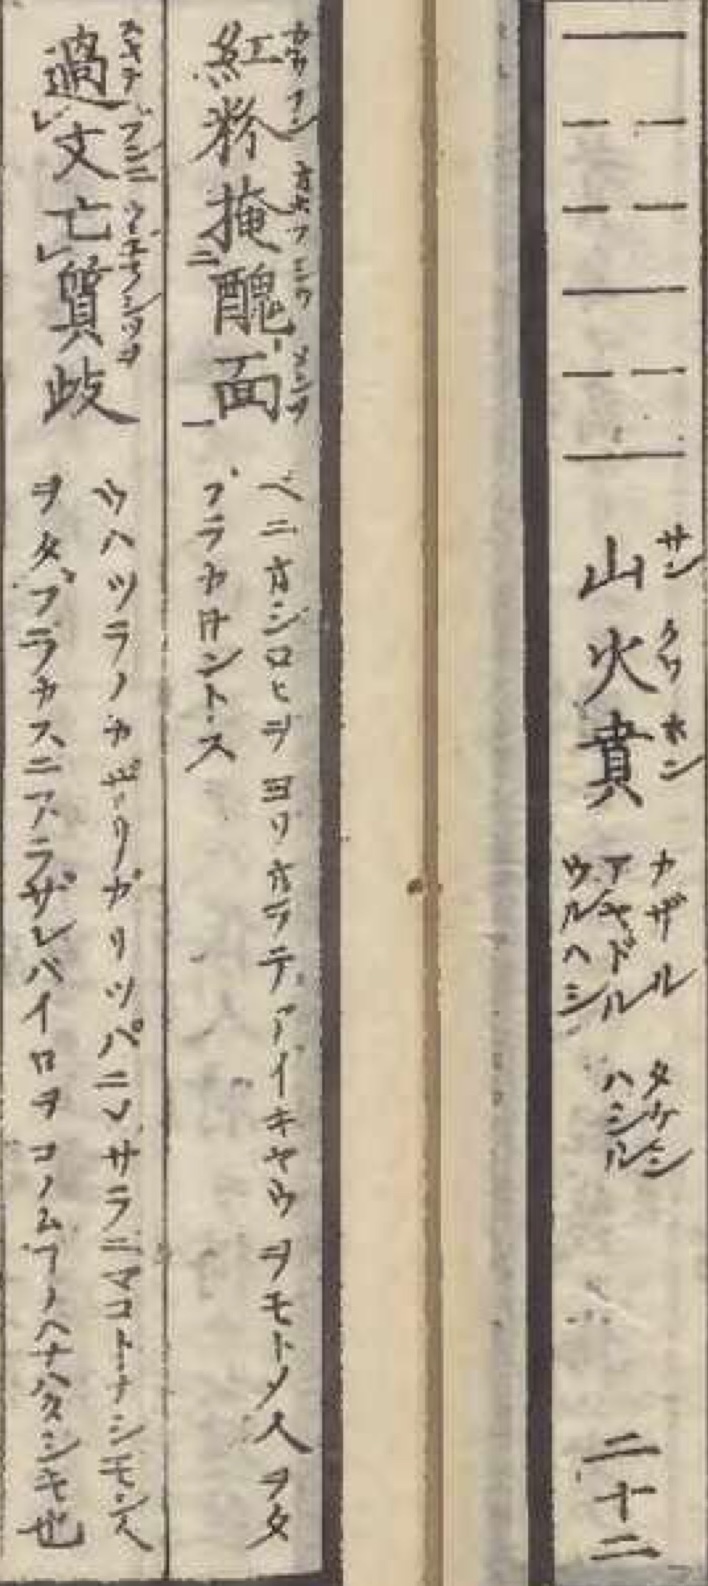 山火賁
サン クワ ホン
カザル
アヤドル
ウルヘシ
タケシ
ハシル
二十二
紅粉掩醜面
カウフン オホフ シウ メンヲ
ベニオシロヒヲヨリホラテアイキヤウヲモトメ人ヲタ
ブラカサントス
過文亡質歧
スギテ ブンニ ウシナフシツヲ
ウハツラノカザリガリツパニシサラニマコトナシモシ人
ヲタブラカスニアラザレバイロヲコノムフノハナハダシキ也